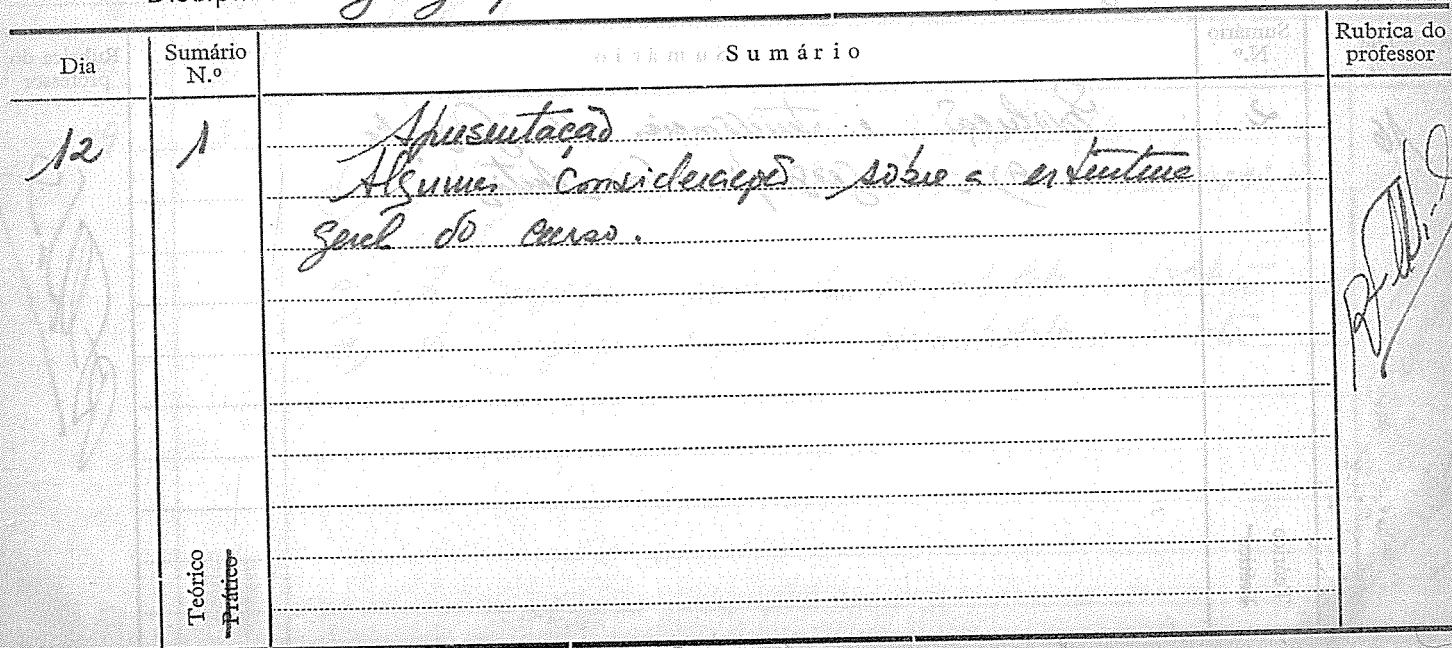 Dia Sumário N.º Sumário Rubrica do professor
12 1 Apresentação
Algumas considerações sobre a estrutura
geral do curso.
Teórico
Prático